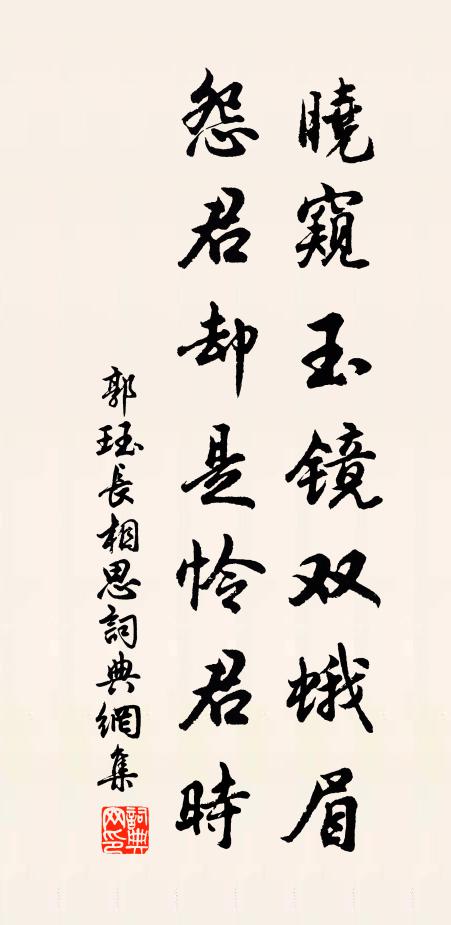 曉窺玉镜双蛾眉
怨君却是怜君時
郭珏長相思詞典網集
詞典网印